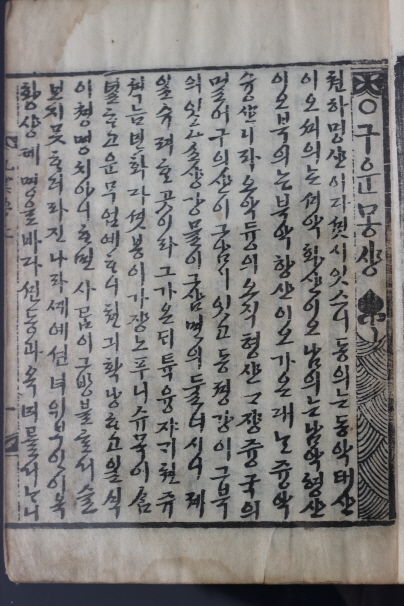 ○구운몽샹
천하명산이다섯시잇스니동의는동악태산
이오셔의는셔악화산이오남의는남악형산
이오북의는북악항산이오가온대는즁악
숭산니라오악듕의오직형산ㄱ쟝즁국의
멀어구의산이그남긔잇고동졍강이그북
의잇고소상강물이그삼면의둘너시니제
일수려ᄒᆞᆫ곳이라그가온ᄃᆡ튝융자긔쳔쥬
셕늠년화다셧봉이가쟝노푸니슈목이삼
ᄒᆞ고운무업예ᄒᆞ니텬긔확낭ᄒᆞ고일식
이쳥명치아니ᄒᆞ면사ᄅᆞᆷ이그방불
보지못ᄒᆞ 라진나라제예션녀위부인이옥
황샹제명을바다션동과옥녀물